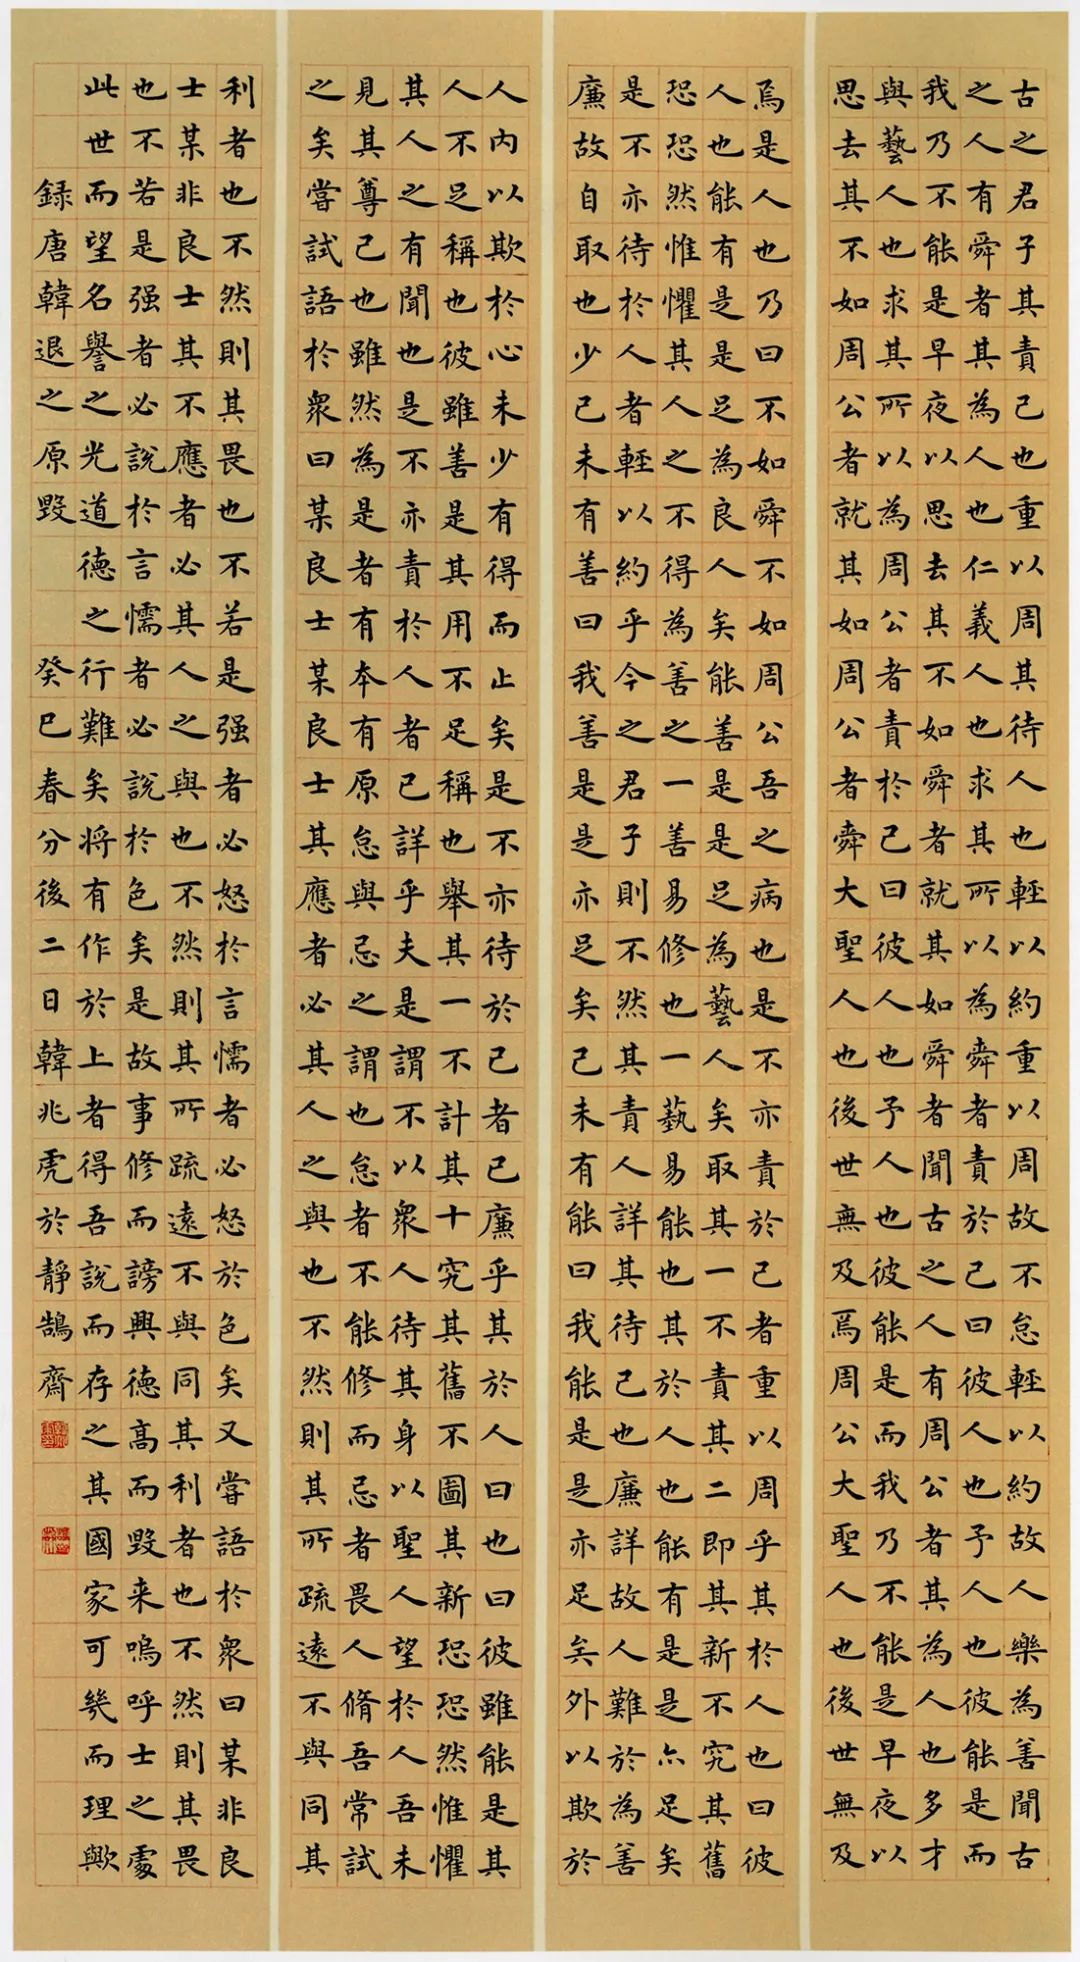 古之君子其責己也重以周其待人也輕以約重以周故不怠輕以約故人樂為善聞古
之人有舜者其為人也仁義人也求其所以為舜者責於己曰彼人也予人也彼能是而
我乃不能是早夜以思去其不如舜者就其如舜者聞古之人有周公者其為人也多才
與藝人也求其所以為周公者責於己曰彼人也予人也彼能是而我乃不能是早夜以
思去其不如周公者就其如周公者舜大聖人也後世無及焉周公大聖人也後世無及
焉是人也乃曰不如舜不如周公吾之病也是不亦責於己者重以周乎其於人也曰彼
人也能有是是足為良人矣能善是是足為藝人矣取其一不責其二即其新不究其舊
恐恐然惟懼其人之不得為善之一善易修也一藝易能也其於人也能有是是亦足矣
是不亦待於人者輕以約乎今之君子則不然其責人詳其待己也廉詳故人難於為善
廉故自取也少己未有善曰我善是是亦足矣己未有能曰我能是是亦足矣外以欺於
人內以欺於心未少有得而止矣是不亦待於己者已廉乎其於人曰也曰彼雖能是其
人不足稱也彼雖善是其用不足稱也舉其一不計其十究其舊不圖其新恐恐然惟懼
其人之有聞也是不亦責於人者已詳乎夫是謂不以眾人待其身以聖人望於人吾未
見其尊己也雖然為是者有本有原怠與忌之謂也怠者不能修而忌者畏人脩吾常試
之矣嘗試語於眾曰某良士某良士其應者必其人之與也不然則其所疏遠不與同其
利者也不然則其畏也不若是强者必怒於言懦者必怒於色矣又嘗語於眾曰某非良
士某非良士其不應者必其人之與也不然則其所疏遠不與同其利者也不然則其畏
也不若是强者必說於言懦者必說於色矣是故事修而謗興德高而毀来嗚呼士之處
此世而望名譽之光道德之行難矣將有作於上者得吾說而存之其國家可幾而理歟
録唐韓退之原毀 癸巳春分後二日韓兆虎於靜鵠齋